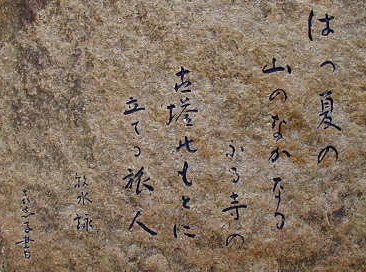 はつ夏の
山のなかなる
ふる寺の
古塔のもとに
立てる旅人
牧水 詠